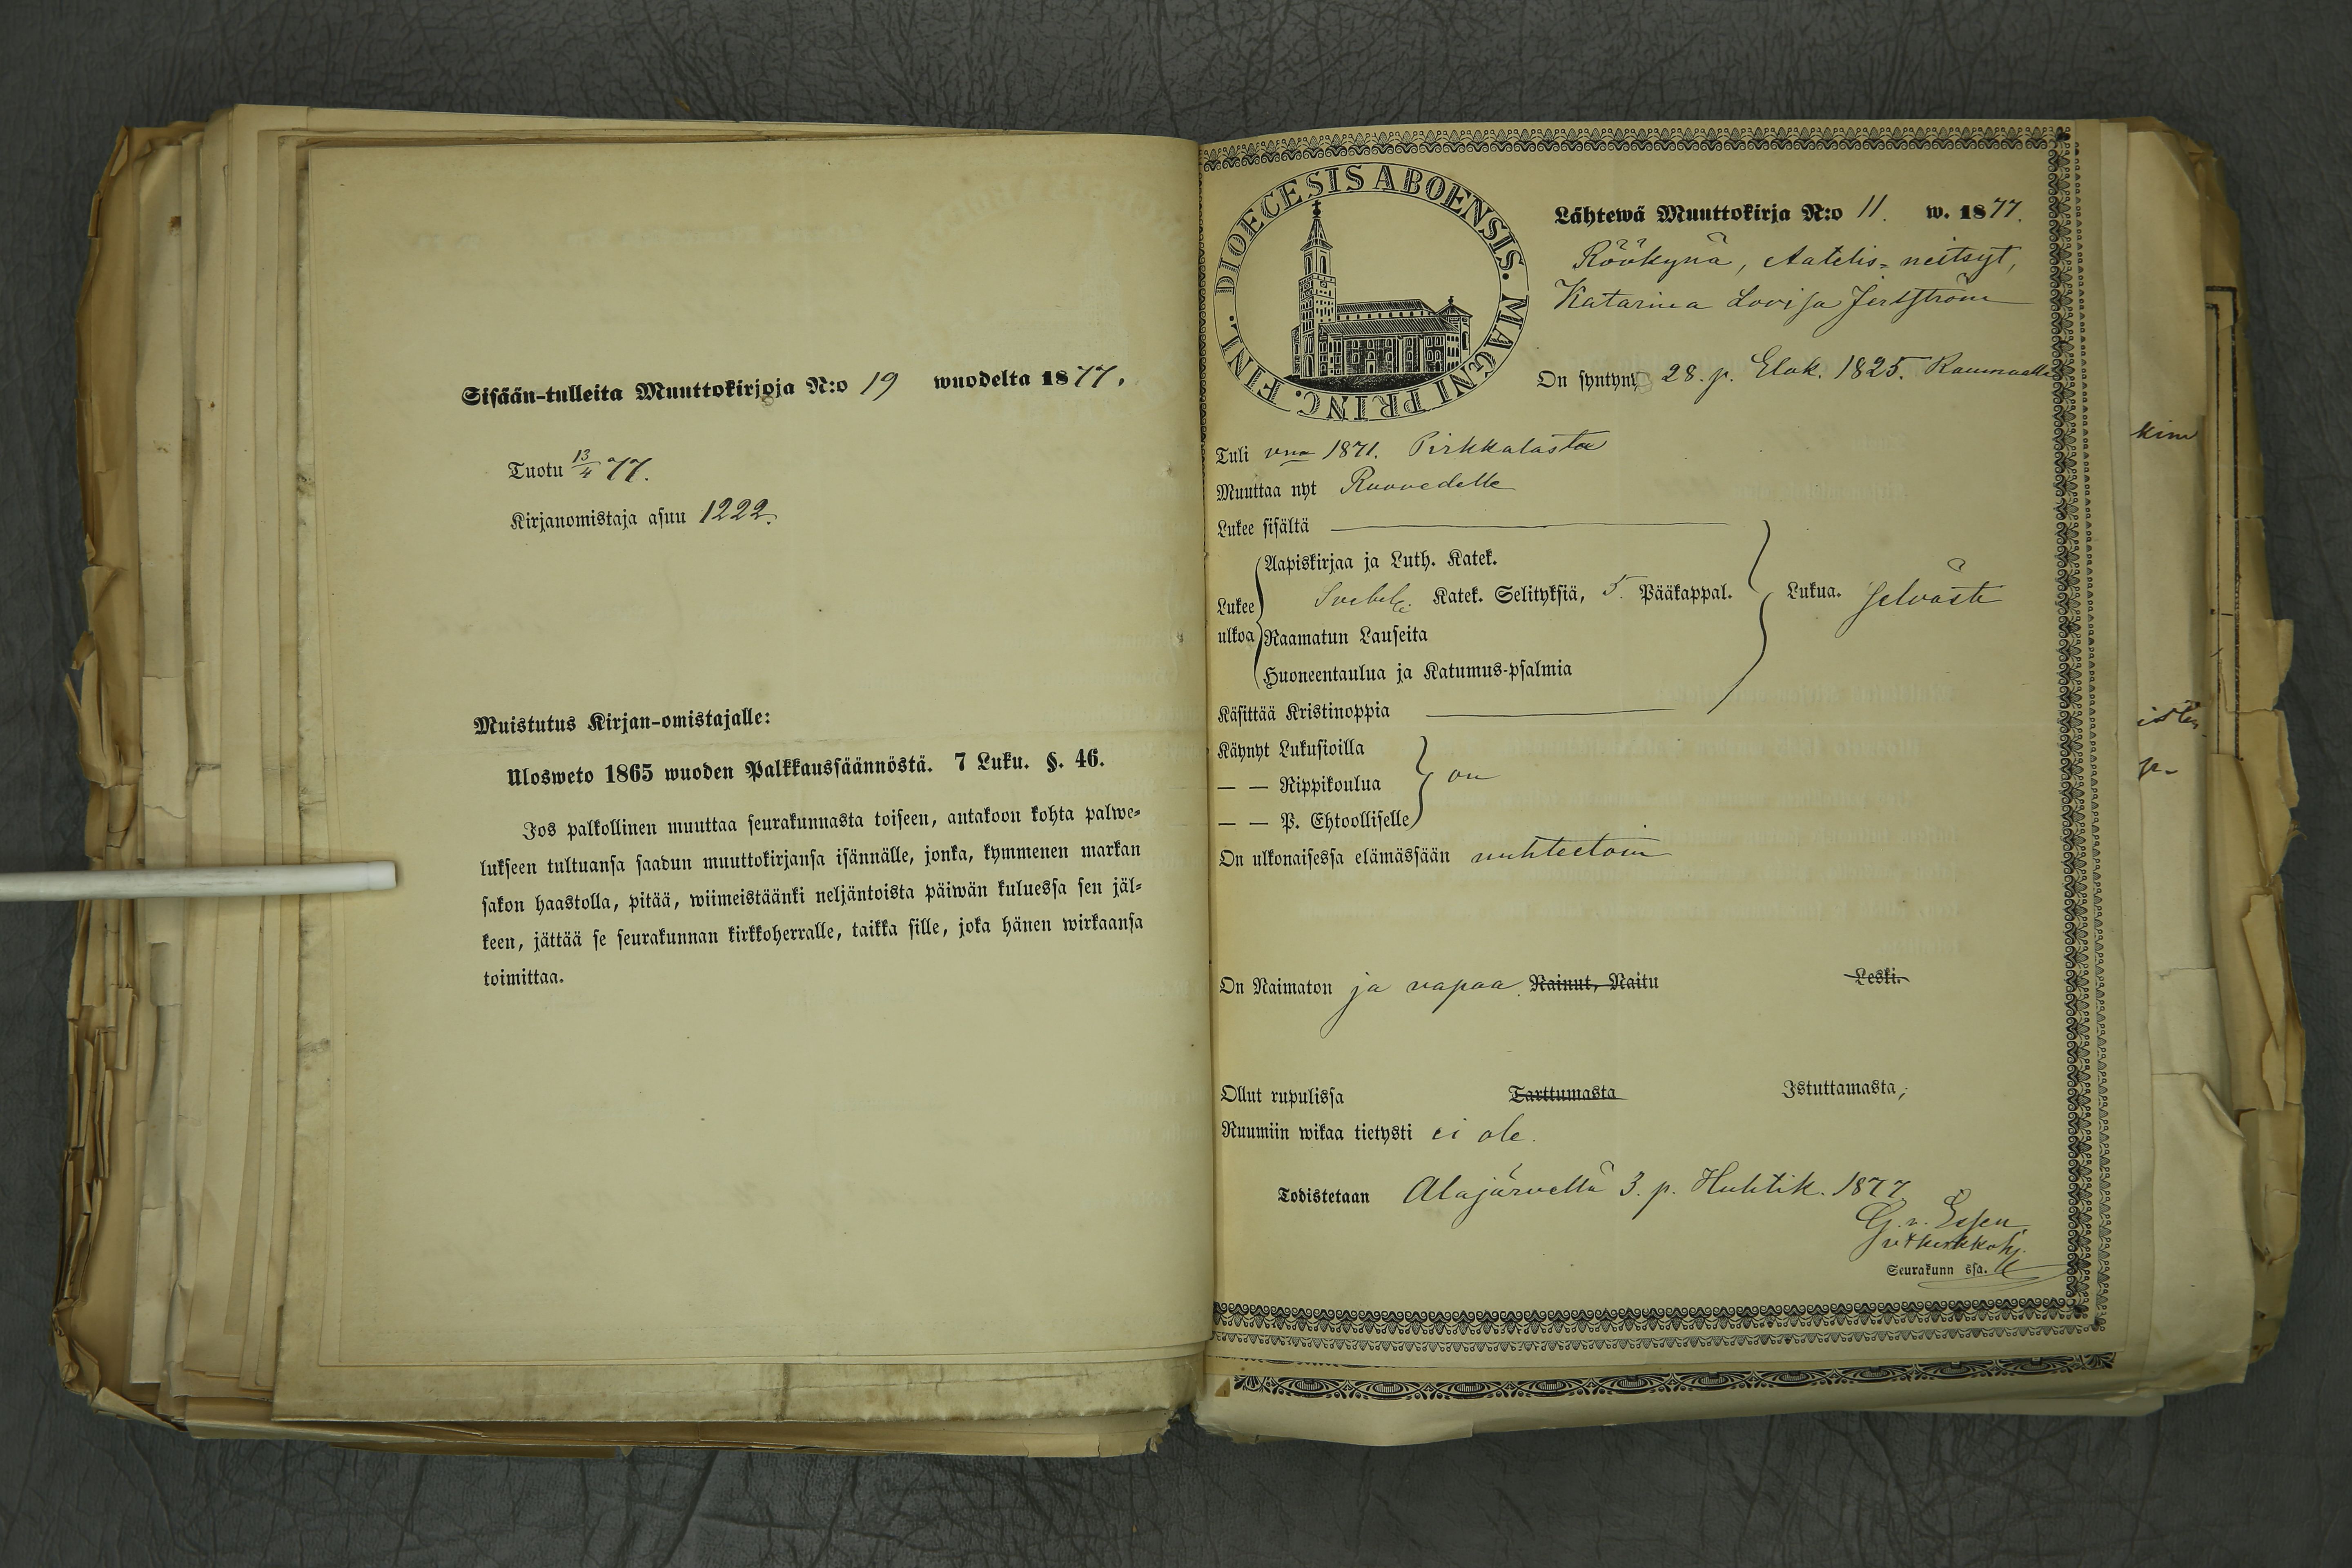 Sisään-tulleita Muuttokirjoja N:o 19 wuodelta 1877.
Tuotu 13/4 77.
Kirjanomistaja asuu 1222.
Muistutus Kirjan-omistajalle:
Ulosweto 1865 wuoden Palkkaussäännöstä. 7 Luku. §. 46.
Jos palkollinen muuttaa seurakunnasta toiseen, antakoon kohta palwe-
lukseen tultuansa saadun muuttokirjansa isännälle, jonka, kymmenen markan
sakon haastolla, pitää, wiimeistäänki neljäntoista päiwän kuluessa sen jäl-
keen, jättää se seurakunnan kirkkoherralle, taikka sille, joka hänen wirkaansa
toimittaa.
DIOECESIS ABOENSIS. MAGNI PRINC. FINL.
Lähtewä Muuttokirja N:o 11. w. 1877.
Röökynä, Aatelis-neitsyt,
Katarina Lovisa
On syntyny 28. p. Elok. 1825. Raumalla
Tuli vna 1871. Pirkkalasta
Muuttaa nyt Ruovedelle
Lukee sisältä
Lukee ulkoa
Aapiskirjaa ja Luth. Katek.
Svebel. Katek. Selityksiä, 5. Pääkappal.
Raamatun Lauseita
Huoneentaulua ja Katumus-psalmia
Lukua. selvästi
Käsittää Kristinoppia
Käynyt Lukusioilla
— — Rippikoulua on
— — P. Ehtoolliselle
On ulkonaisessa elämässään nuhteetoin
On Naimaton ja vapaa. Nainut, Naitu Leski.
Ollut rupulissa Tarttumasta Istuttamasta,
Ruumiin wikaa tietysti ei ole.
Todistetaan Alajärvellä 3. p. Huhtik. 1877
G. v. Essen
Seurakunn ssa.